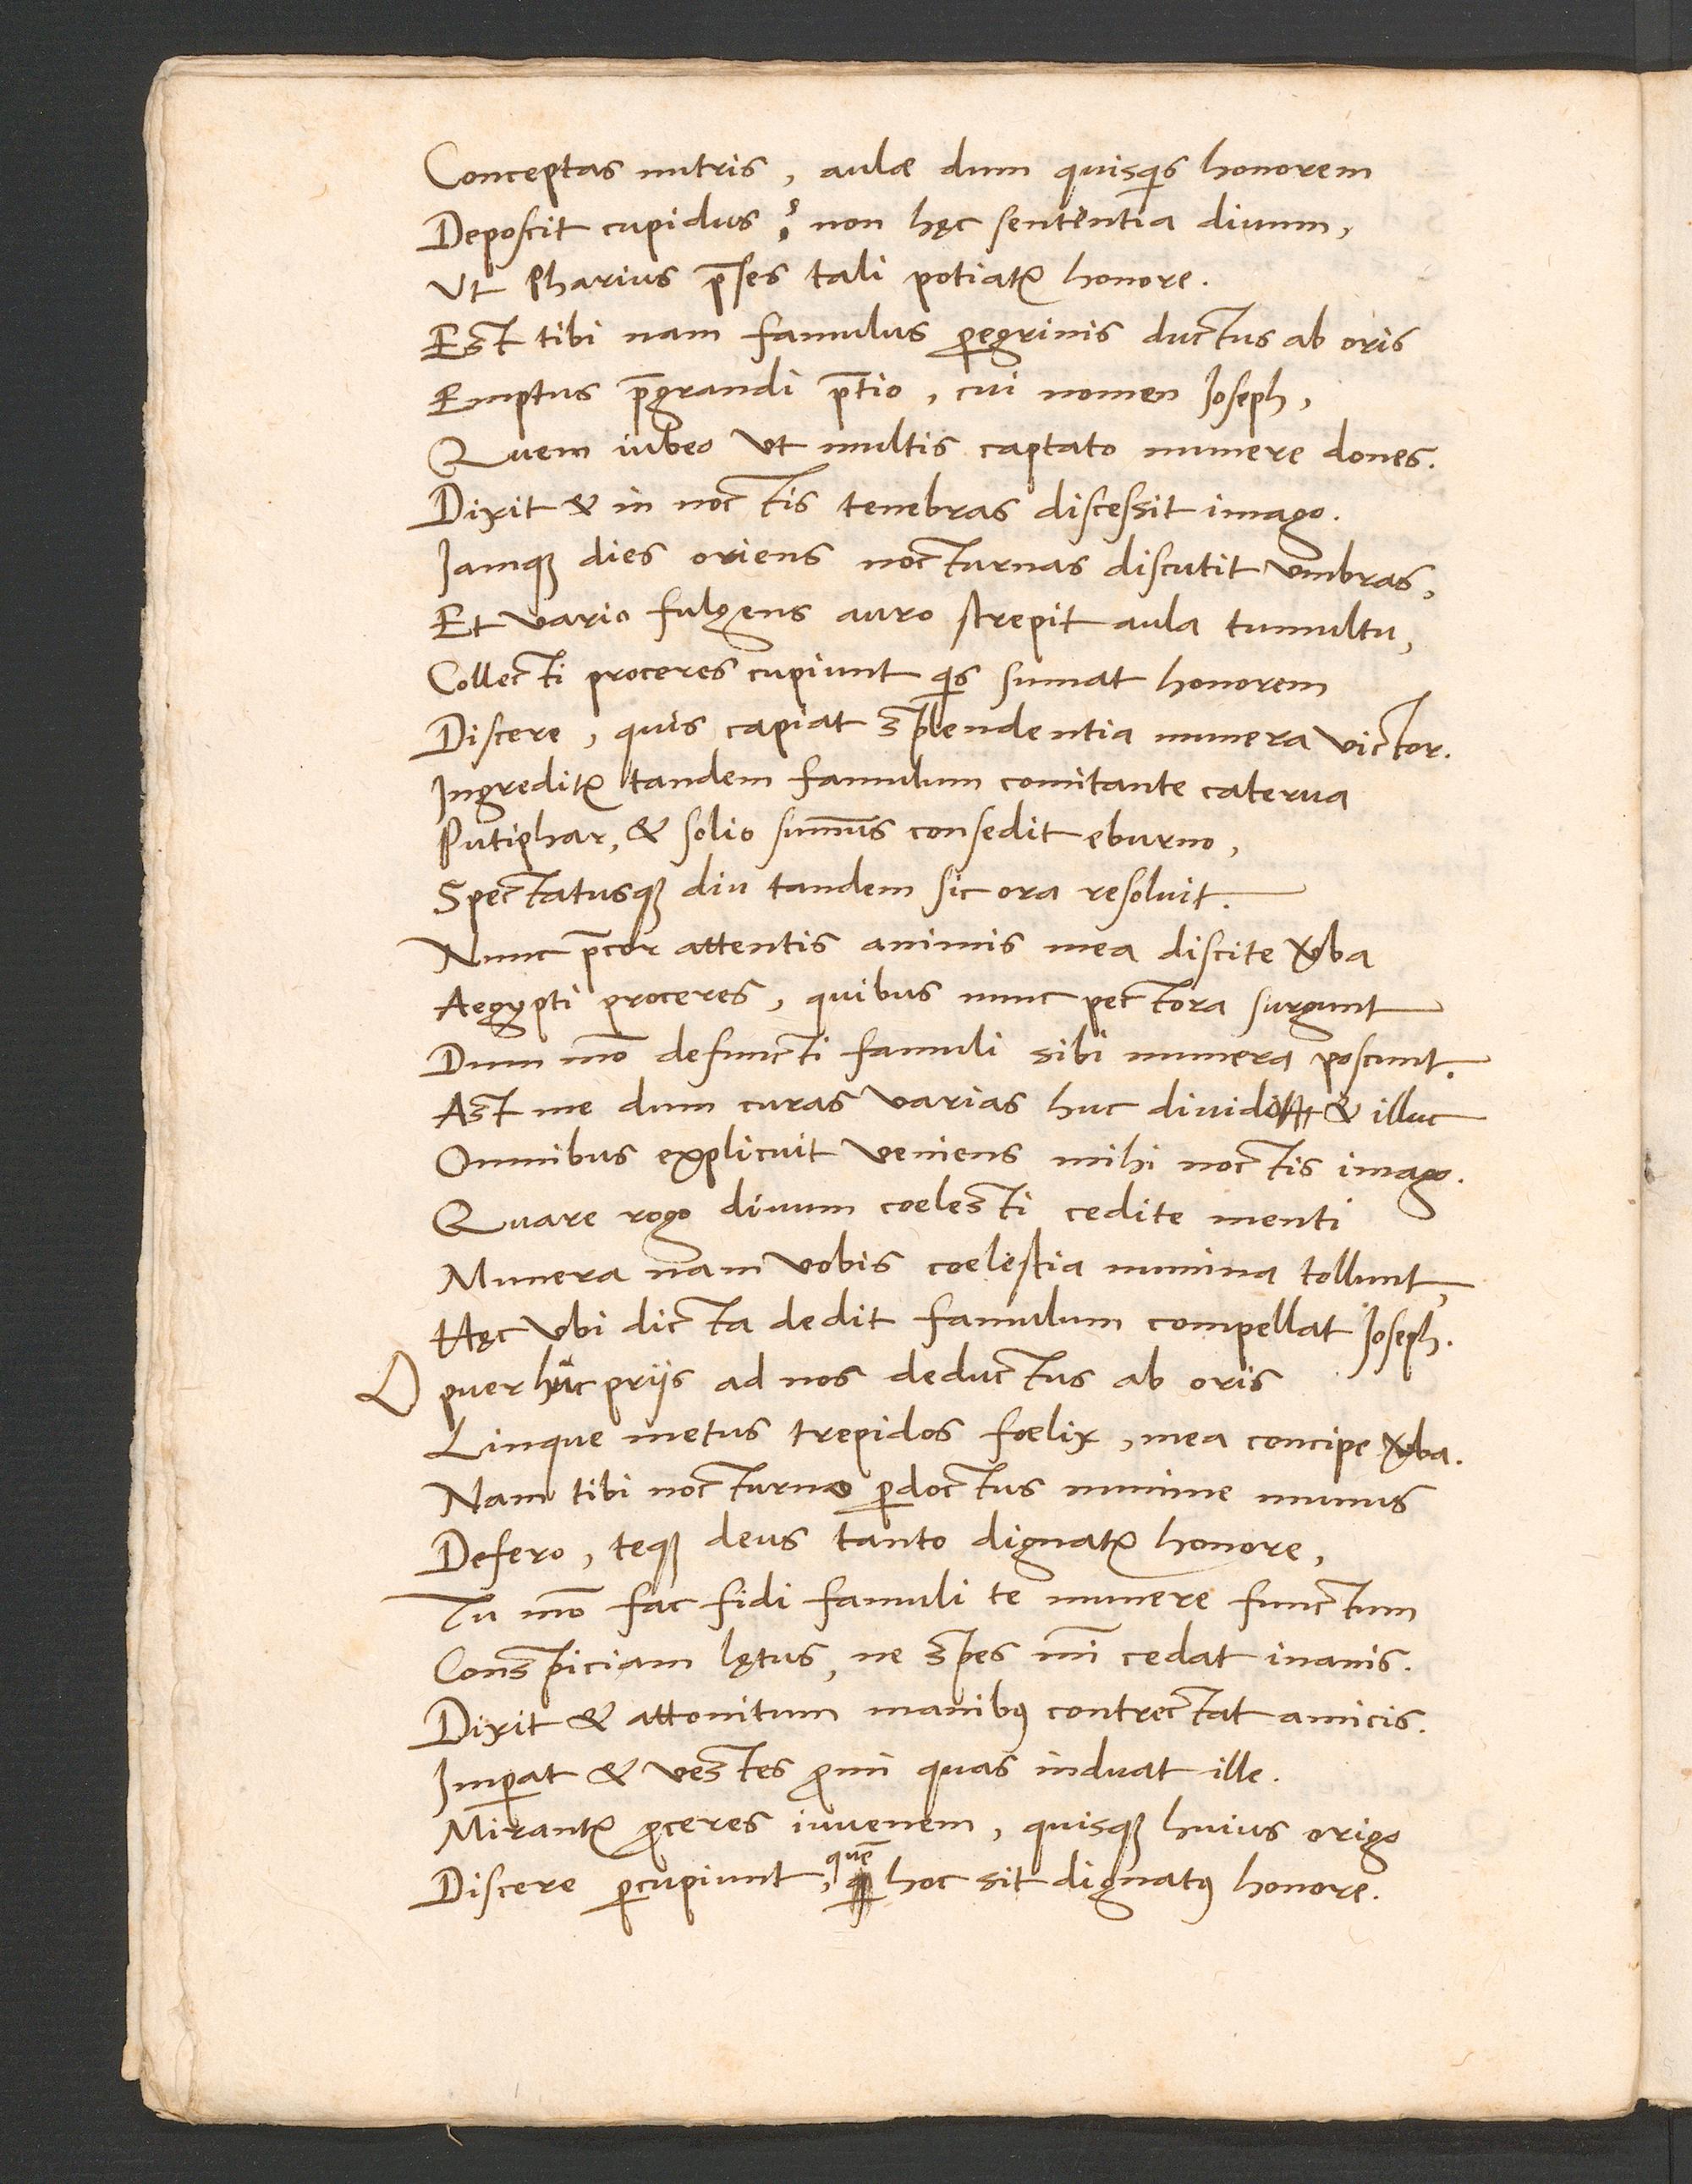 Conceptas nutris, aulæ dum quisqis honorem
Deposcit cupidus? non hęc sententia diuum,
Ut Pharius p̄ses tali potiatur honore.
Est tibi nam famulus ꝑegrinis ductus ab oris
Emptus p̄grandi p̄tio, cui nomen Joseph,
Quem iubeo ut multis captato munere dones.
Dixit & in noctis tenebras discessit imago.
Jamqꝫ dies oriens nocturnas discutit umbras,
Et vario fulgens auro strepit aula tumultu,
Collecti proceres cupiunt qis sumat honorem
Discere, quis capiat splendentia munera victor.
Ingreditur tandem famulum comitante caterua
Putiphar, & solio sum̄us consedit eburno,
Spectatusqꝫ diu tandem sic ora resoluit.
Nunc p̄cor attentis animis mea discite v̄ba
Aegypti proceres, quibus nunc pectora surgunt
Dum mō defuncti famuli sibi munera poscunt.
Ast me dum curas varias huc diuido & illuc
Omnibus explicuit veniens mihi noctis imago.
Quare rogo diuum coelesti cedite menti
Munera nam vobis coelestia numina tollunt,
Hęc ubi dicta dedit famulum compellat Joseph.
O puer huc priis ad nos deductus ab oris
Linque metus trepidos foelix, mea concipe v̄ba.
Nam tibi nocturno ꝑdoctus numine munus
Defero, teqꝫ deus tanto dignatur honore,
Tu mō fac fidi famuli te munere functum
Conspiciam lętus, ne spes mī cedat inanis.
Dixit & attonitum manibꝰ contrectat amicis.
Imꝑat & vestes ꝓmi quas induat ille.
Mirantur ꝓceres iuuenem, quisqꝫ huius origo
Discere ꝑcupiunt, quē hoc sit dignatꝰ honore.